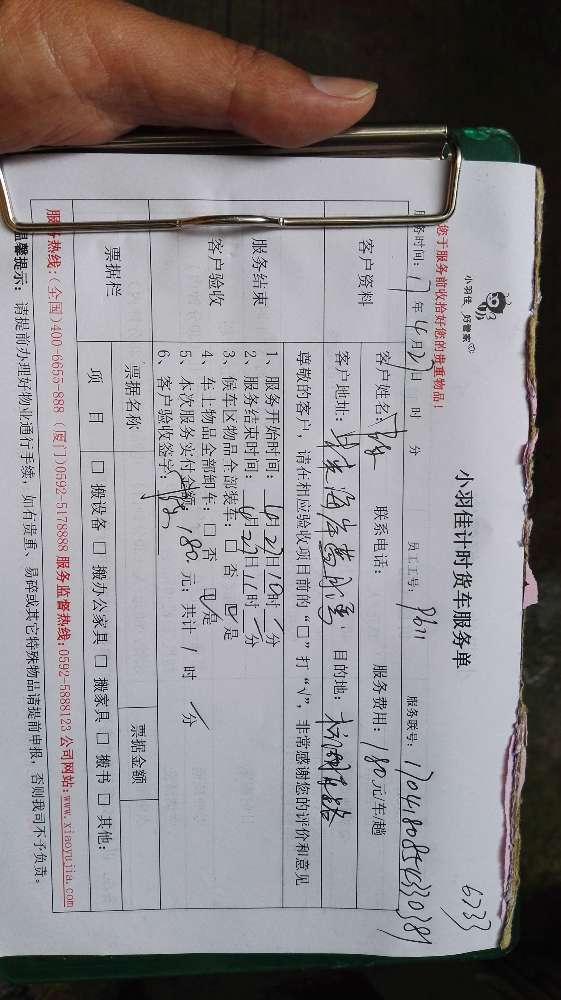 小羽佳 好管家
小羽佳计时货车服务单
6733
您于服务前收拾好您的贵重物品！
服务时间：17年4月27日 时 分 员工工号：P611 服务联号：
客户资料
客户姓名： 联系电话： 服务费用：180元/车/趟
客户地址： 目的地：
尊敬的客户，请在相应验收项目前的“□”打“√”，非常感谢您的评价和意见
服务结束
客户验收
1、服务开始时间：4月27日10时 分
2、服务结束时间：4月27日11时 分
3、候车区物品全部装车：□ 否 ☑ 是
4、车上物品全部卸车：□ 否 ☑ 是
5、本次服务实付金额：180元；共计 1 时 分
6、客户验收签字：
票据栏
票据名称 票据金额
项 目 □ 搬设备 □ 搬办公家具 □ 搬家具 □ 搬书 □ 其他：
服务热线：(全国)400-6655-888 (厦门)0592-5178888 服务监督热线：0592-5888123 公司网站：www.xiaoyujia.com
温馨提示：请提前办理好物业通行手续，如有贵重、易碎或其它特殊物品请提前申报，否则我司不予负责。